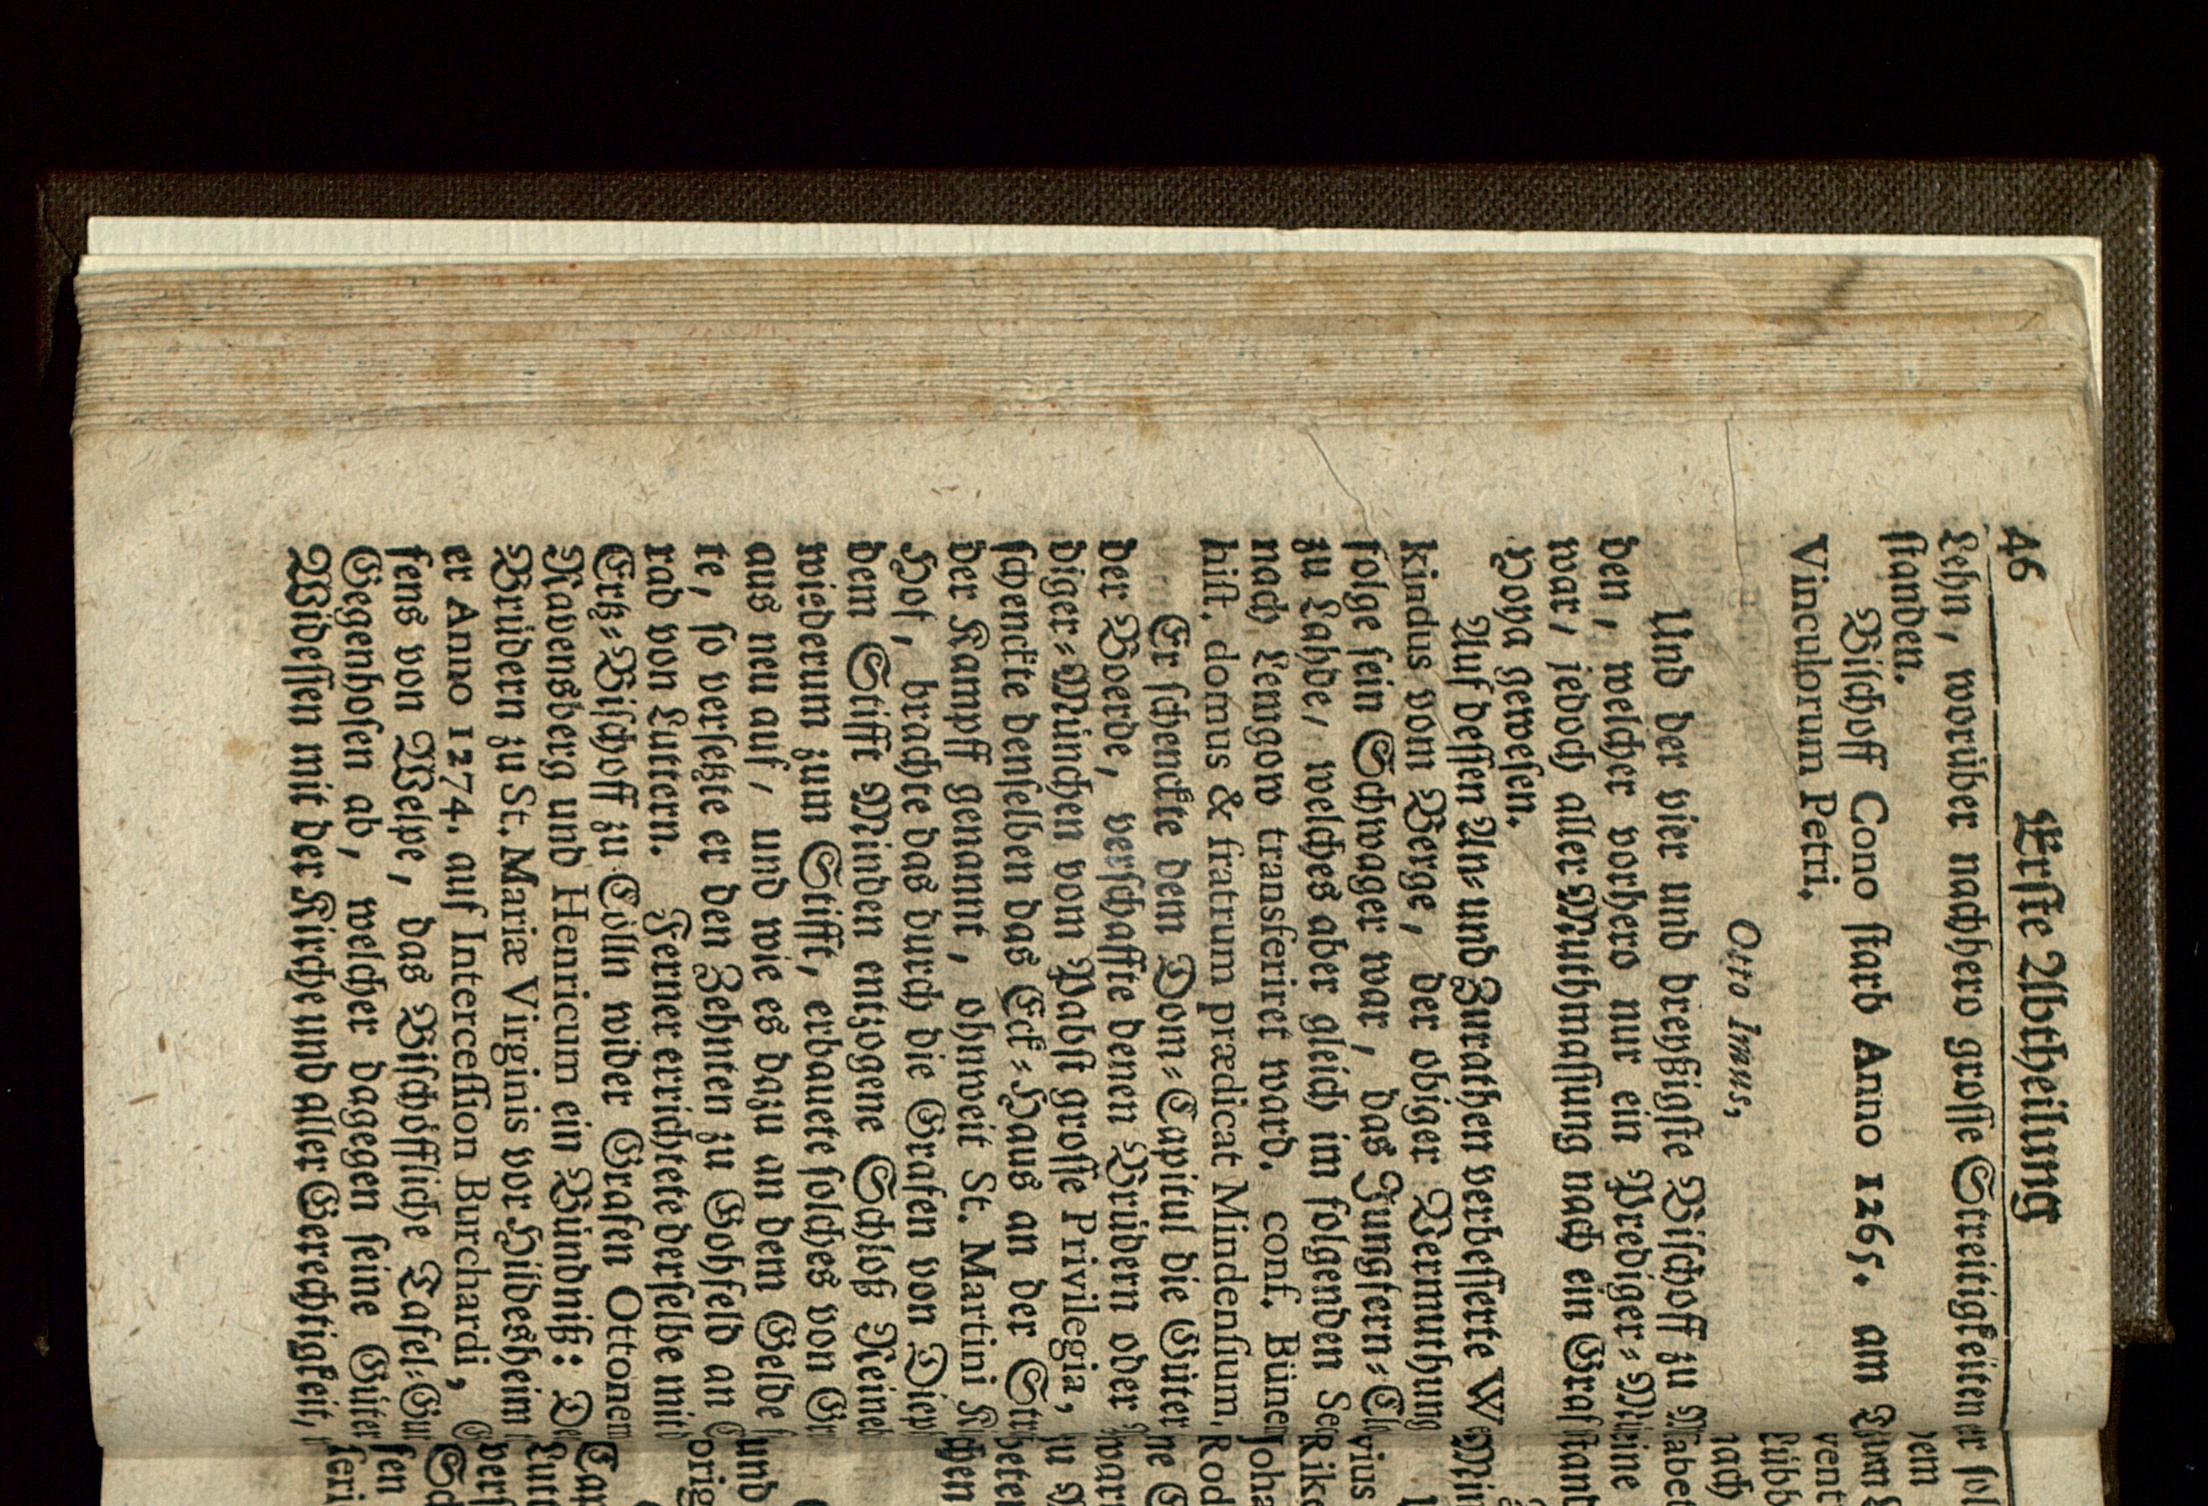 46 Erste Abtheilung
Lehn, worüber nachhero grosse Streitigkeiten
standen.
Bischoff Cono starb Anno 1265. am
Vinculorum Petri.
Otto Imus,
Und der vier und dreyßigste Bischoff zu
den, welcher vorhero nur ein Prediger-
war, jedoch aller Muthmassung nach ein Graf
Hoya gewesen.
Auf dessen An- und Zurathen verbesserte
kindus vom Berge, der obiger Vermuthung
folge sein Schwager war, das Jungfern-
zu Lahde, welches aber gleich im folgenden
nach Lemgow transferiret ward. conf.
hist. domus & fratrum prædicat Mindensium,
Er schenckte dem Dom-Capitul die Güter
der Boerde, verschaffte denen Brüdern oder
diger-München vom Pabst grosse Privilegia,
schenckte denselben das Eck-Haus an der
der Kampff genannt, ohnweit St. Martini
Hof, brachte das durch die Grafen von
dem Stifft Minden entzogene Schloß
wiederum zum Stifft, erbauete solches von
aus neu auf, und wie es dazu an dem Gelde
te, so versetzte er den Zehnten zu Gohfeld an
rad von Luttern. Ferner errichtete derselbe mit
Ertz-Bischoff zu Cölln wider Grafen Ottonem
Ravensberg und Henricum ein Bündniß:
Brüdern zu St. Mariæ Virginis vor Hildesheim
er Anno 1274. auf Intercession Burchardi,
sens von Welpe, das Bischöffliche Tafel-
Gegenhofen ab, welcher dagegen seine Güter
Widessen mit der Kirche und aller Gerechtigkeit,